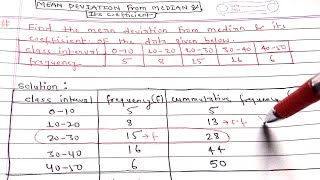 MEAN DEVIATION FROM MEDIAN &
Its Coefficient
# Find the mean deviation from median & its
coefficient of the data given below.
class interval 0-10 10-20 20-30 30-40 40-50
frequency 5 8 15 16 6
Solution:
class interval frequency(f) cummulative frequency
0-10 5 5
10-20 8 13→c.f
20-30 15→f 28
30-40 16 44
40-50 6 50